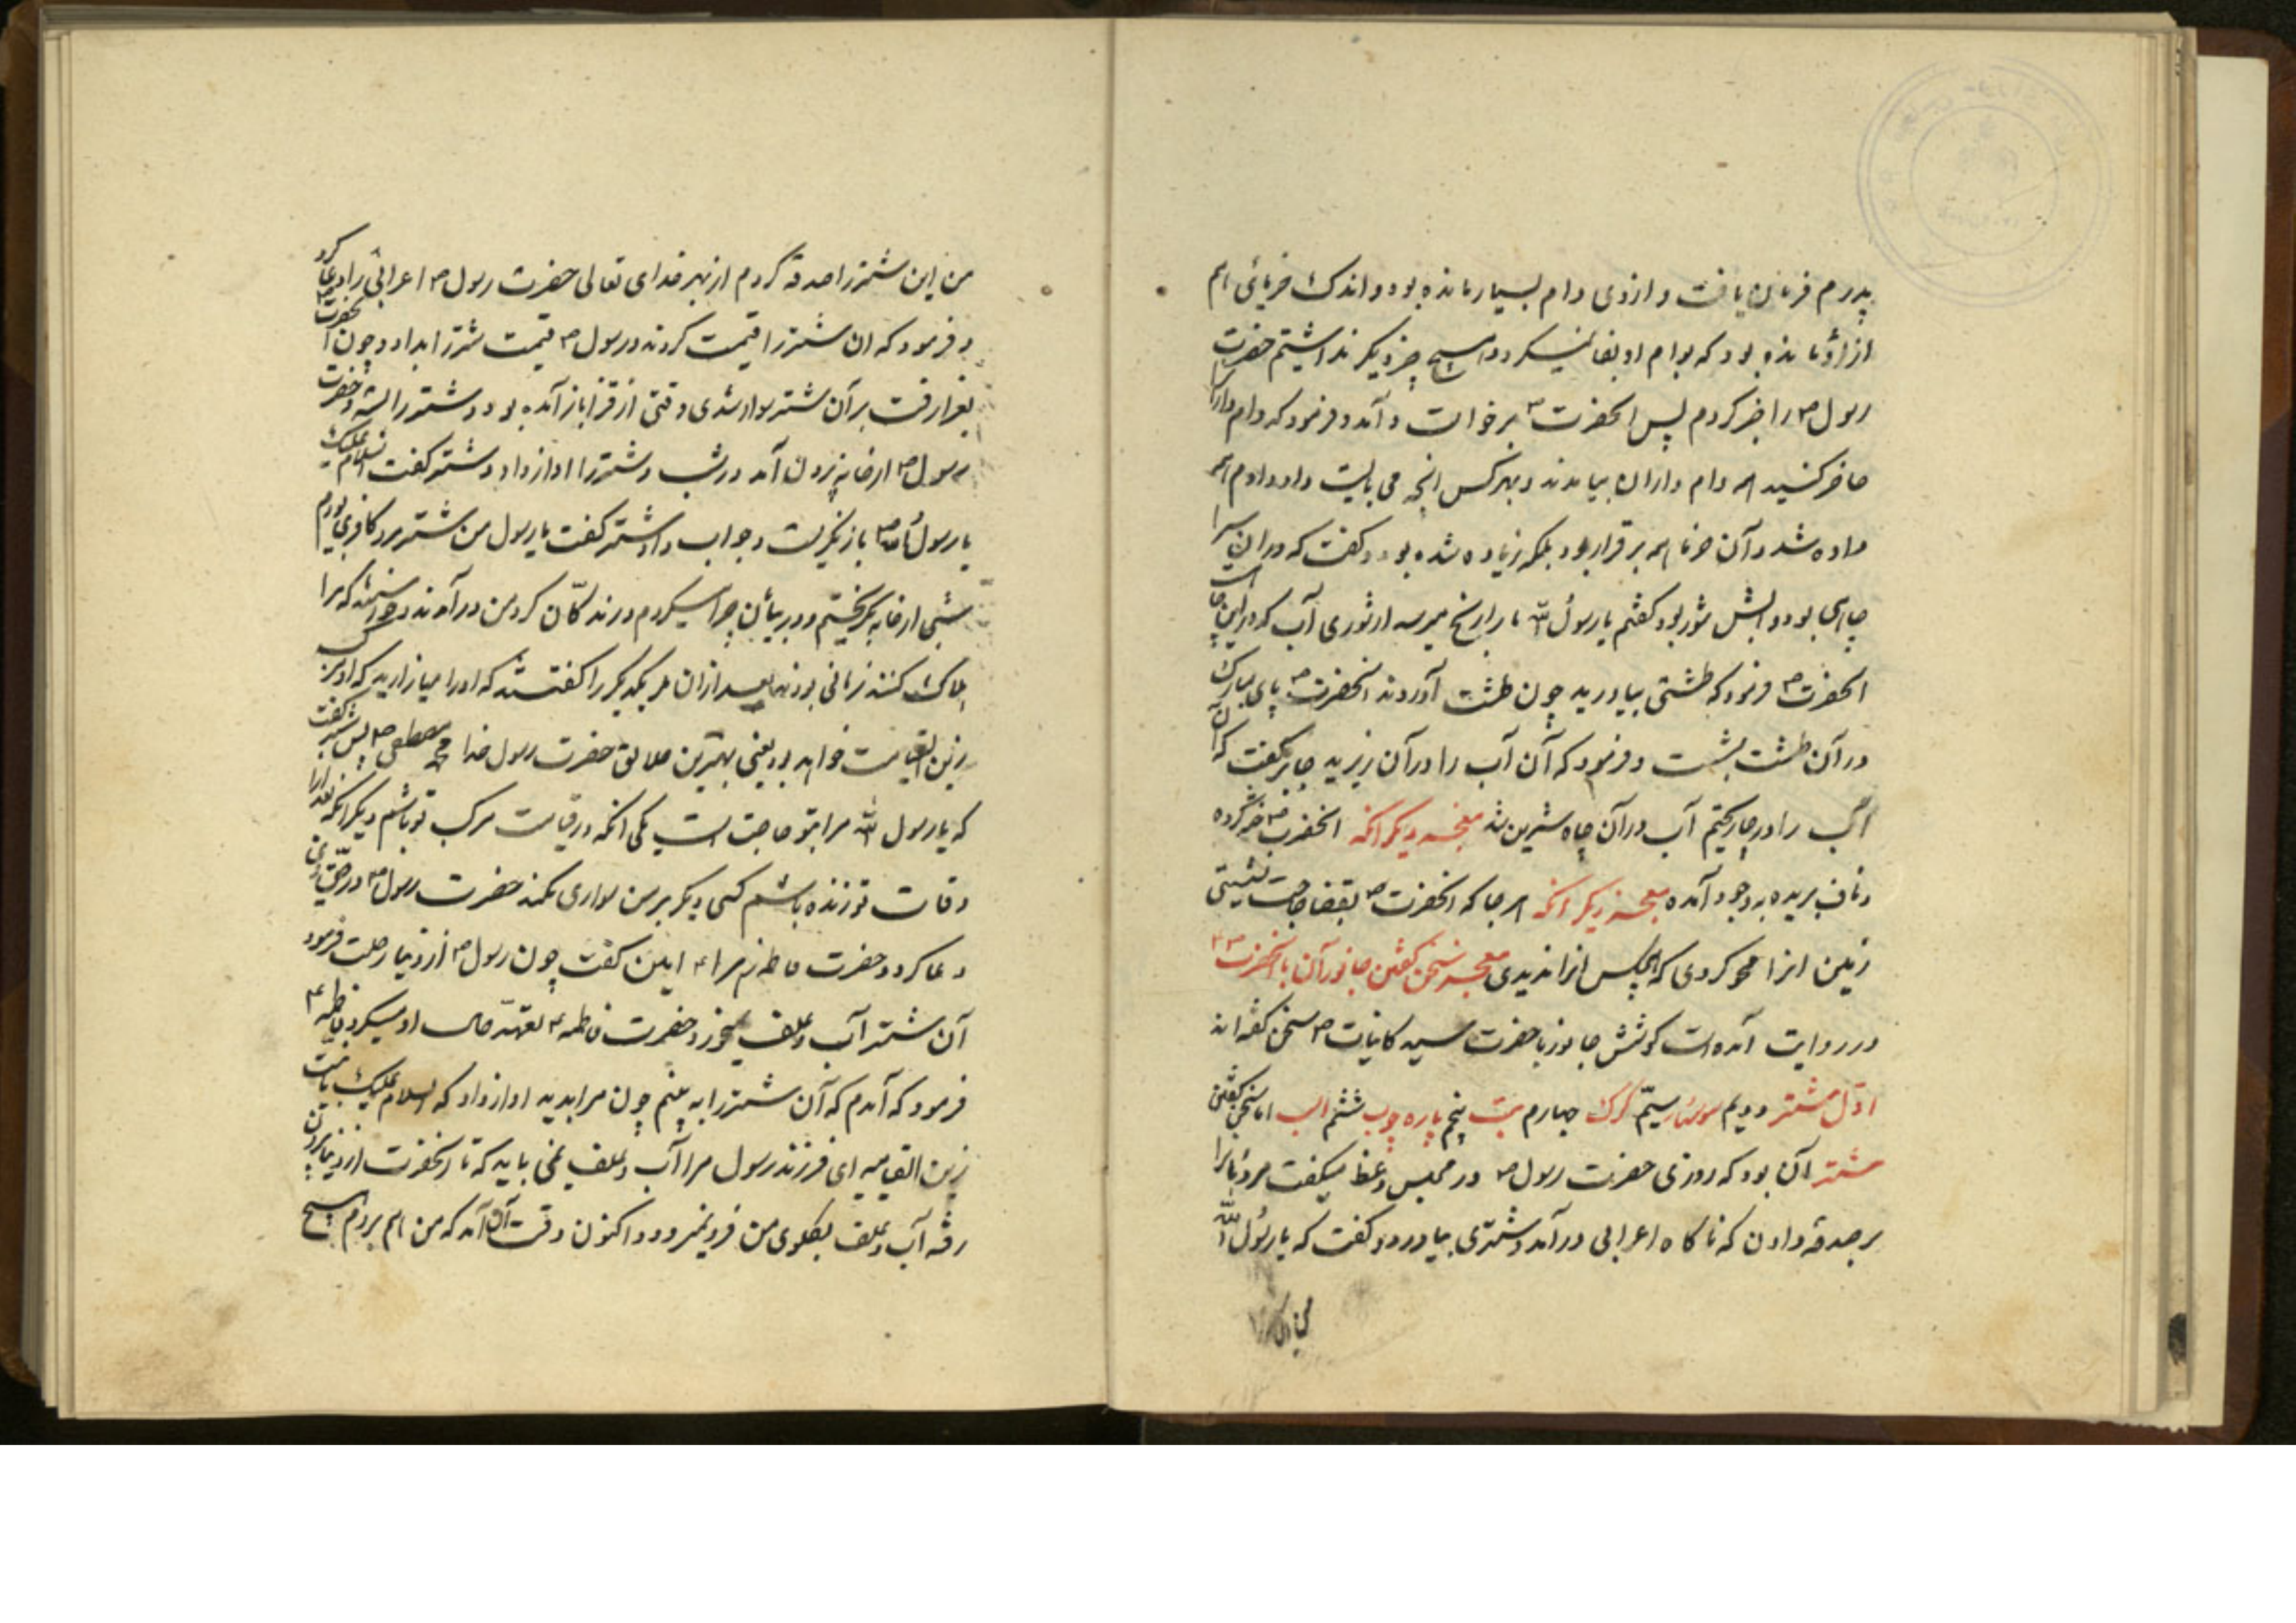 پدرم فرمان یافت و از وی وام بسیار مانده بود و اندک خرمائی هم
از او مانده بود که بوام او وفا نمیکرد و هیچ چیز دیکر نداشتیم حضرت
رسول ص را خبر کردم پس انحضرت ص برخواست و آمد و فرمود که وام دارانرا
حاضر کنید همه وام داران بیامدند و بهر کس انچه می بایست داد وام همه
داده شد و آن خرما همه برقرار بود بلکه زیاده شده بود و کفت که در ان سرا
چاهی بود و آبش شور بود کفتم یا رسول الله ما را رنج میرسد از شوری آب که در این چاه است
انحضرت ص فرمود که طشتی بیاورید چون طشت آوردند انحضرت ص پای مبارک
در آن طشت بشست و فرمود که آن آب را در آن ریزید جابر کفت که آن
آب را در چاه ریختیم آب در آن چاه شیرین شد معجزه دیکر انکه انحضرت ص ختنه کرده
و ناف بریده بوجود آمده معجزه دیکر انکه هر جا که انحضرت ص بقضا حاجت نشستی
زمین انرا محو کردی که هیچکس انرا ندیدی معجزه سخن کفتن جانوران با انحضرت ص
در روایت آمده است که شش جانور با حضرت سید کاینات ص سخن کفته اند
اول شتر دویم سوسمار سیّم کرک چهارم بت پنجم پاره چوب ششم اسب اما سخن کفتن
شتر آن بود که روزی حضرت رسول ص در مجلس وعظ میکفت مردمانرا
بر صدقه دادن که ناکاه اعرابی در آمد و شتری بیاورد و کفت که یا رسول الله
من این شتر را صدقه کردم از بهر خدای تعالی حضرت رسول ص اعرابی را دعا کرد
و فرمود که ان شتر را قیمت کردند و رسول ص قیمت شتر را بداد و چون انحضرت
بغزا رفت بر آن شتر سوار شدی وقتی از غزا باز آمده بود و شتر را بسته و حضرت
رسول ص از خانه بیرون آمد در شب و شتر را اواز داد و شتر کفت السلام علیک
یا رسول الله ص باز نکریست و جواب داد شتر کفت یا رسول من شتر مرد کافری بودم
شبی از خانه بکریختم و در بیابان چرا میکردم درندکان کرد من در آمدند و خواستند که مرا
هلاک کنند زمانی بودند بعد از ان هر یکدیکر را کفتند که او را میازارید که او مرکب
زین القیامت خواهد بود یعنی بهترین خلایق حضرت رسول خدا محمد مصطفی ص پس شتر کفت
که یا رسول الله مرا بتو حاجت است یکی انکه در قیامت مرکب تو باشم دیکر انکه بعد از
وفات تو زنده باشم کسی دیکر بر من سواری نکند حضرت رسول ص در حق وی
دعا کرد و حضرت فاطمه زهرا ع کفت چون رسول ص از دنیا رحلت فرمود
آن شتر آب و علف نمیخورد و حضرت فاطمه ع تعهد حال او میکرد فاطمه ع
فرمود که آمدم که آن شتر را به بینم چون مرا بدید اواز داد که السلام علیک یا بنت
زین القیامه ای فرزند رسول مرا آب و علف نمی باید که تا انحضرت از دنیا بیرون
رفته آب و علف بکلوی من فرو نمیرود و اکنون وقت آن آمد که من هم بروم هیچ